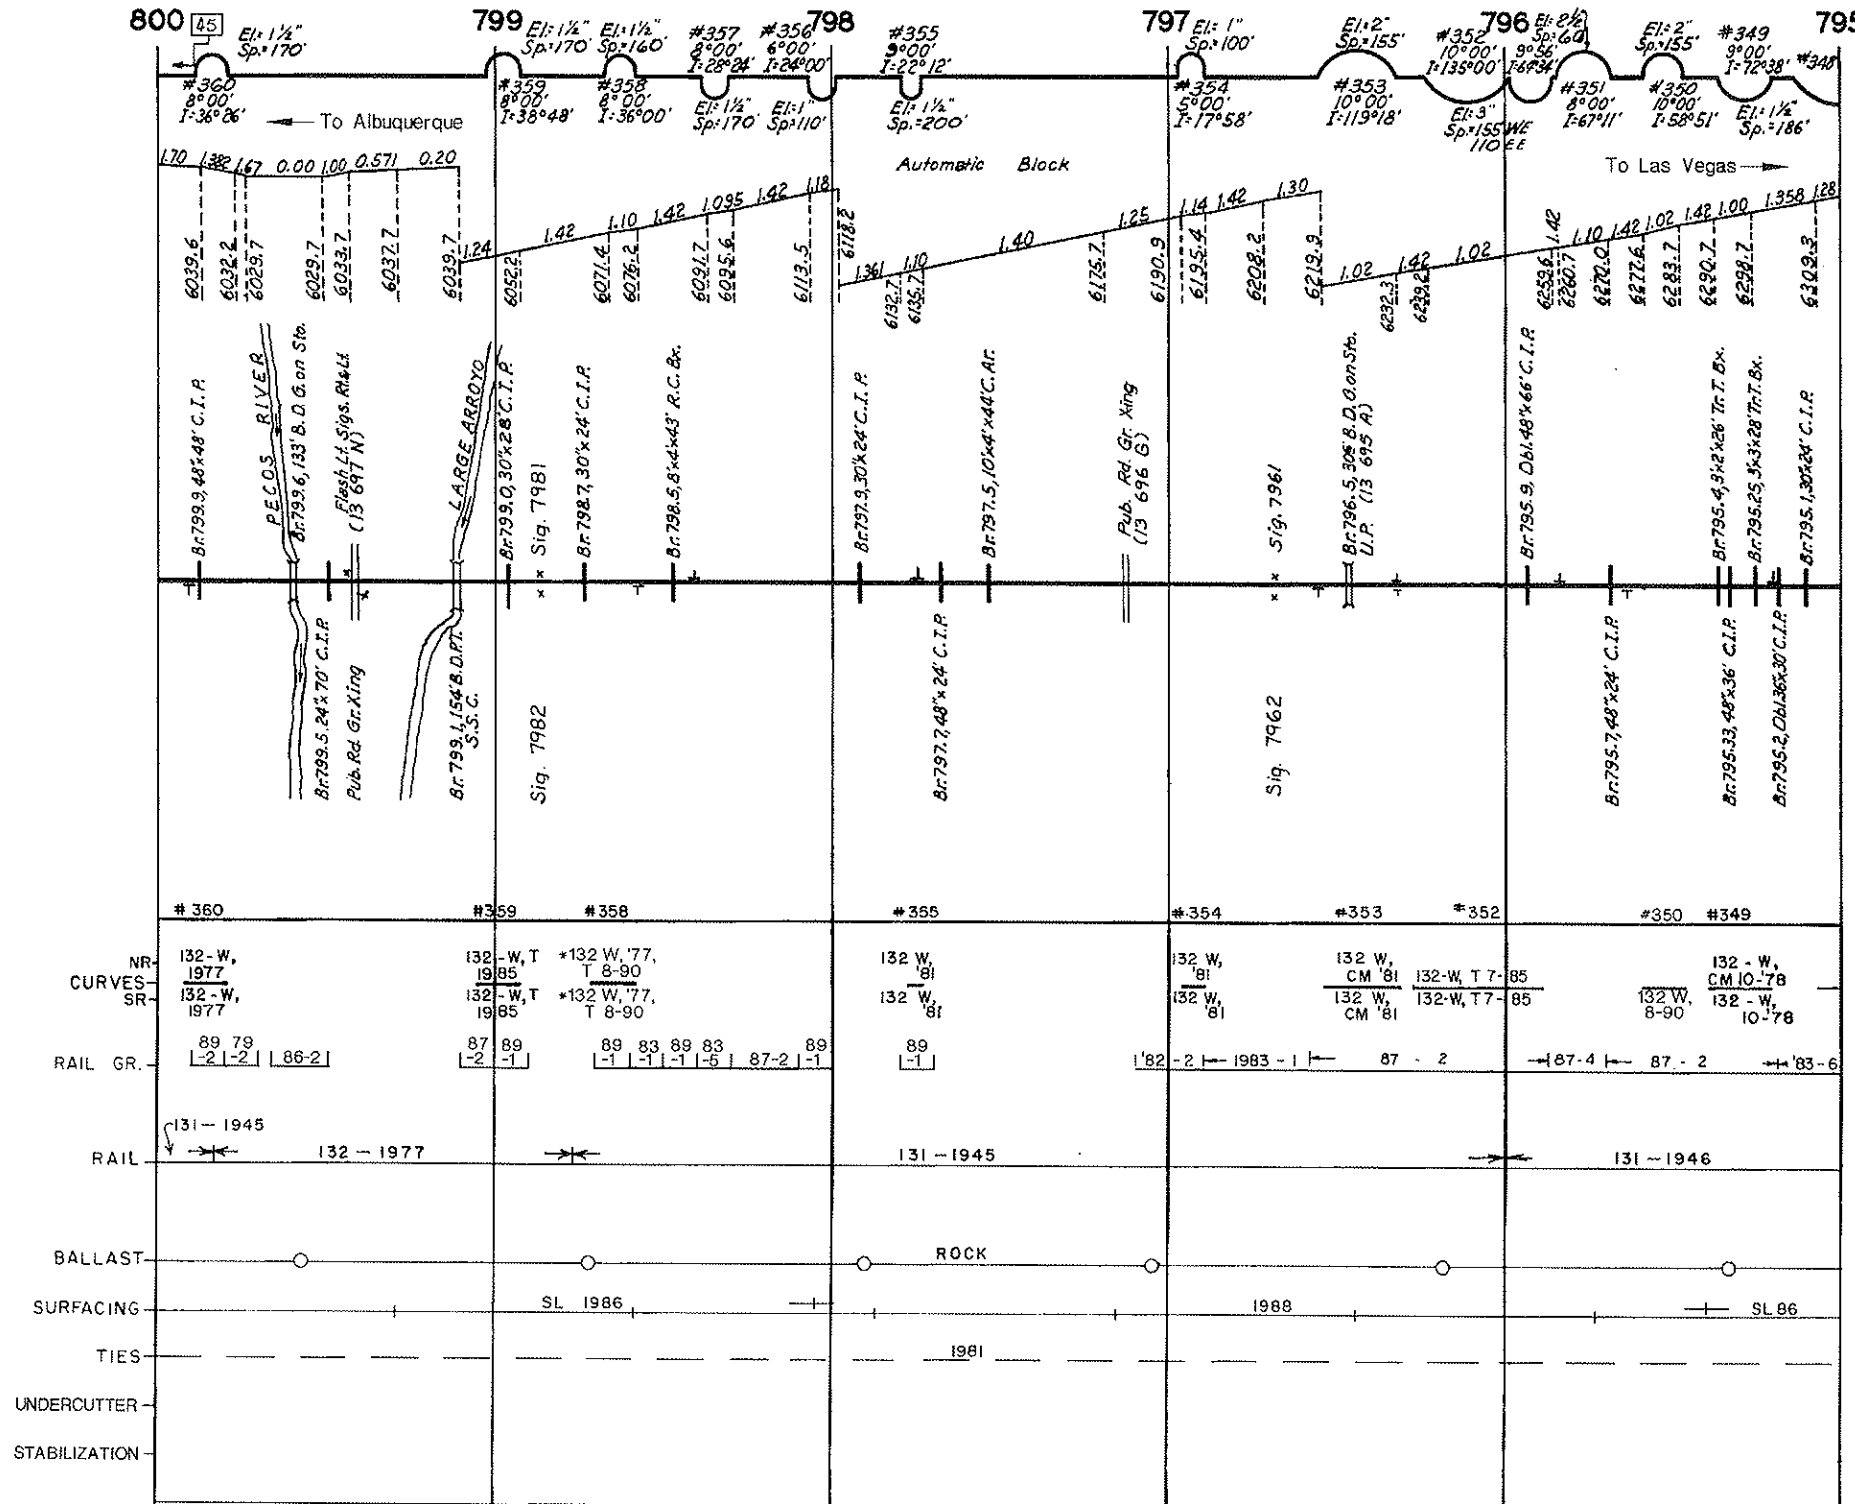 800
45
El.= 1½"
Sp.=170'
799
El.= 1½"
Sp.=170'
El.=1½"
Sp.=160'
#357
8°00'
I=28°24'
#356
6°00'
I=24°00'
798
#355
9°00'
I=22°12'
797
El.= 1"
Sp.=100'
El.=2"
Sp.=155'
#352
10°00'
I=135°00'
796
9°56'
El.=2½
Sp.=60'
El.=2"
Sp.=155'
#349
9°00'
I=72°38'
#348
795
#360
8°00'
I=36°26'
#359
8°00'
I=38°48'
#358
8°00'
I=36°00'
El.=1½"
Sp.=170'
El.=1"
Sp.=110'
El.= 1½"
Sp.=200'
#354
5°00'
I=17°58'
#353
10°00'
I=119°18'
El.=3"
Sp.=155'WE
110'EE
#351
8°00'
I=67°11'
#350
10°00'
I=58°51'
El.=1½"
Sp.=186'
To Albuquerque
Automatic Block
To Las Vegas
1.70 1.382 1.67 0.00 1.00 0.571 0.20
1.24 1.42 1.10 1.42 1.095 1.42 1.18
1.361 1.10 1.40 1.25 1.14 1.42 1.30
1.02 1.42 1.02 1.42 1.10 1.42 1.02 1.42 1.00 1.358 1.28
6039.6
6032.2
6029.7
6029.7
6033.7
6037.7
6039.7
6052.2
6071.4
6076.2
6091.7
6095.6
6113.5
6118.2
6132.7
6135.7
6175.7
6190.9
6195.4
6208.2
6219.9
6232.3
6239.2
6259.6
6260.7
6270.0
6277.6
6283.7
6290.7
6298.7
6309.3
Br.799.9,48"x48' C.I.P.
PECOS RIVER
Br.799.6,133' B.D.G.on Sto.
Flash Lt. Sigs. Rt.&Lt.
(13 697 N)
LARGE ARROYO
Br.799.0,30"x28' C.I.P.
Sig. 7981
Br.798.7,30"x24' C.I.P.
Br.798.5,8'x4'x43' R.C.Bx.
Br.797.9,30"x24' C.I.P.
Br.797.5,10'x4'x44'C.Ar.
Pub. Rd. Gr. Xing
(13 696 G)
Sig. 7961
Br.796.5,30'6" B.D.O.on Sto.
U.P. (13 695 A)
Br.795.9, Dbl.48"x66' C.I.P.
Br.795.4,3'x2'x26' Tr.T. Bx.
Br.795.25,3'x3'x28' Tr.T. Bx.
Br.795.1,30"x24' C.I.P.
Br.799.5,24"x70' C.I.P.
Pub. Rd. Gr. Xing
Br.799.1,154'B.D.P.T.
S.S.C.
Sig. 7982
Br.797.7,48"x24' C.I.P.
Sig. 7962
Br.795.7,48"x24' C.I.P.
Br.795.33,48"x36' C.I.P.
Br.795.2,Dbl.36"x30'C.I.P.
#360 #359 #358 #355 #354 #353 #352 #350 #349
NR
CURVES
SR
132-W,
1977
132-W,
1977
132-W,T
1985
132-W,T
1985
*132 W,'77,
T 8-90
*132 W,'77,
T 8-90
132 W,
'81
132 W,
'81
132 W,
'81
132 W,
'81
132 W,
CM '81
132 W,
CM '81
132-W, T 7-85
132-W, T 7-85
132 W,
8-90
132 - W,
CM 10-'78
132 - W,
10-'78
RAIL GR.
89
-2
79
-2
86-2
87
-2
89
-1
89
-1
83
-1
89
-1
83
-5
87-2
89
-1
89
-1
'82-2 1983-1 87 - 2 87-4 87 - 2 '83-6
131-1945
RAIL
132-1977 131-1945 131-1946
BALLAST
ROCK
SURFACING
SL 1986 1988 SL86
TIES
1981
UNDERCUTTER
STABILIZATION